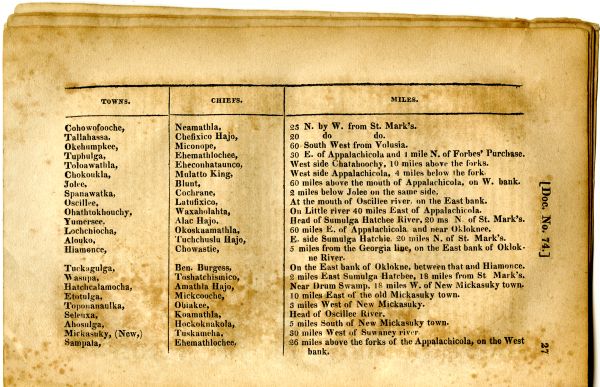 TOWNS. CHIEFS. MILES.
Cohowofooche, Neamathla, 25 N. by W. from St. Mark's.
Tallahassa. Chefixico Hajo, 20 do do.
Okehumpkee, Miconope, 60 South West from Volusia.
Tuphulga, Ehemathlochee, 30 E. of Appalachicola and 1 mile N. of Forbes' Purchase.
Toloawathla, Eheconhataunco, West side Chatahoochy, 10 miles above the forks.
Chokoukla, Mulatto King, West side Appalachicola, 4 miles below the fork.
Jolee, Blunt, 60 miles above the mouth of Appalachicola, on W. bank.
Spanawatka, Cochrane, 2 miles below Jolee on the same side.
Oscillee, Latufixico, At the mouth of Oscillee river, on the East bank.
Ohathtokhouchy, Waxaholahta, On Little river 40 miles East of Appalachicola.
Yumersee, Alac Hajo, Head of Sumulga Hatchee River, 20 ms N. of St. Mark's.
Lochenocha, Okoskaamathla, 60 miles E. of Appalachicola, and near Okloknee.
Alouko, Tuchchuslu Hajo, E. side Sumulga Hatchie 20 miles N. of St. Mark's.
Hiamonce, Chowastie, 5 miles from the Georgia line, on the East bank of Oklok-
ne River.
Tuckagulga, Ben. Burgess, On the East bank of Oklokne, between that and Hiamonce.
Wasupa, Toshatchismico, 2 miles East Sumulga Hatchee, 18 miles from St. Mark's.
Hatchcalamocha, Amathla Hajo, Near Drum Swamp, 18 miles W. of New Mickasuky town.
Etotulga, Mickcooche, 10 miles East of the old Mickasuky town.
Toponanaulka, Obiakee, 3 miles West of New Mickasuky.
Seleuxa, Koamathla, Head of Oscillee River.
Ahosulga, Hockoknakola, 5 miles South of New Mickasuky town.
Mickasuky, (New,) Tuskameha, 30 miles West of Suwaney river.
Sampala, Ehemathlochee, 26 miles above the forks of the Appalachicola, on the West
bank.
[Doc. No. 74.]
27